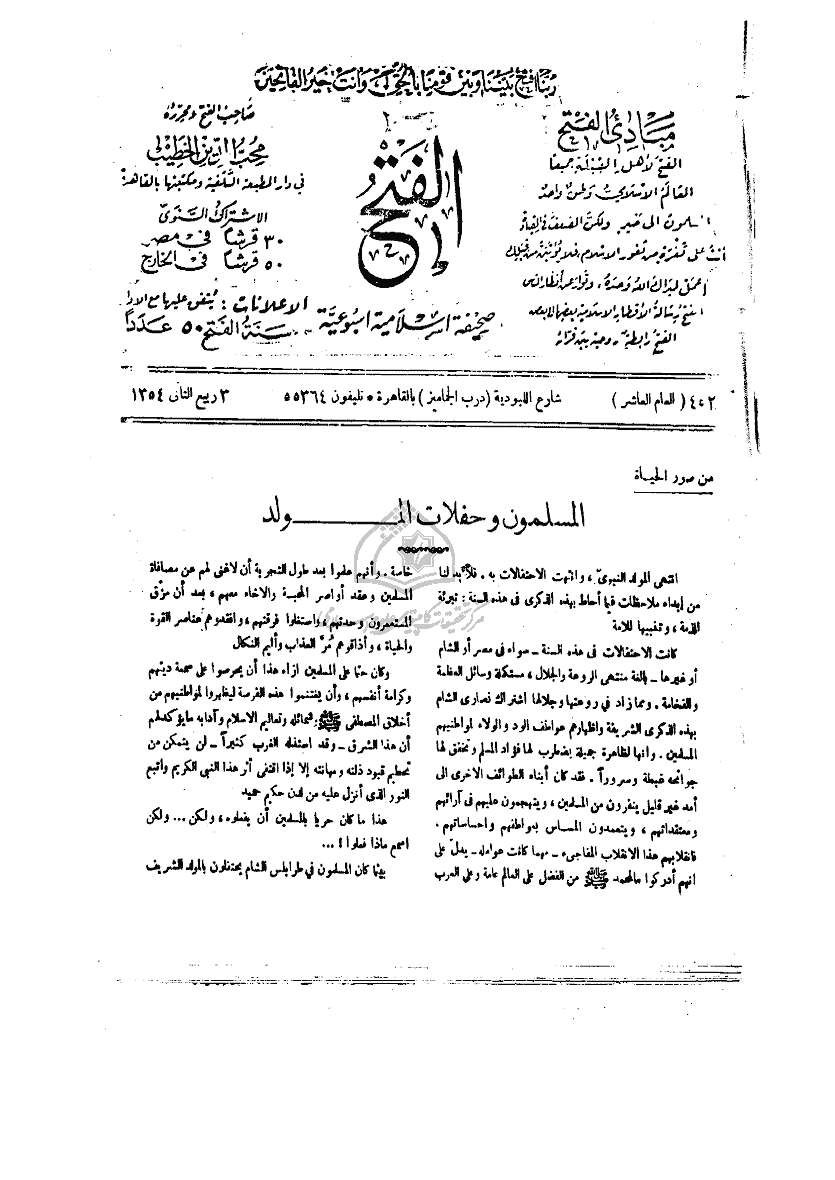 ربنا افتح بيننا وبين قومنا بالحق وأنت خير الفاتحين
مبادئ الفتح
الفتح لأهل القبلة جميعا
العالم الاسلامي وطن واحد
المسلمون الى خير ولكن الضعف في القيادة
أنت على ثغرة من ثغور الاسلام فلا يؤتين من قبلك
اعمل ليراك الله وحده، وتوار عن أنظار الناس
الفتح رسالة الأقطار الاسلامية بعضها الى بعض
الفتح رابطة روحية بين قرائه
الفتح
صحيفة اسلامية أسبوعية
صاحب الفتح ومحرره
محب الدين الخطيب
في دار المطبعة السلفية ومكتبتها بالقاهرة
الاشتراك السنوى
٣٠ قرشا في مصر
٥٠ قرشا في الخارج
الاعلانات : يتفق عليها مع الادارة
سنة الفتح ٥٠ عددا
٤٠٢ ( العام العاشر )
شارع اللبودية (درب الجاميز) بالقاهرة • تليفون ٥٥٣٦٤
٣ ربيع الثانى ١٣٥٤
من صور الحياة
المسلمون وحفلات المولد
انتهى المولد النبوىّ، وانتهت الاحتفالات به. فلا بد لنا
من إبداء ملاحظات فيما أحاط بهذه الذكرى فى هذه السنة: تبرئة
للذمة، وتنبيها للأمة
كانت الاحتفالات فى هذه السنة ــ سواء فى مصر أو الشام
أو غيرها ــ بالغة منتهى الروعة والجلال، مستكملة وسائل العظمة
والفخامة. ومما زاد في روعتها وجلالها اشتراك نصارى الشام
بهذه الذكرى الشريفة واظهارهم عواطف الود والولاء لمواطنيهم
المسلمين. وانها لظاهرة جميلة يضطرب لها فؤاد المسلم وتخفق لها
جوانحه غبطة وسروراً. فقد كان أبناء الطوائف الاخرى الى
أمد غير قليل ينفرون من المسلمين، ويتهجمون عليهم فى آرائهم
ومعتقداتهم، ويتعمدون المساس بعواطفهم واحساساتهم.
فانقلابهم هذا الانقلاب المفاجىء ــ مهما كانت عوامله ــ يدلّ على
انهم أدركوا مالمحمد ﷺ من الفضل على العالم عامة وعلى العرب
خاصة. وأنهم علموا بعد طول التجربة أن لاغنى لهم عن مصافاة
المسلمين وعقد أواصر المحبة والاخاء معهم، بعد أن مزّق
المستعمرون وحدتهم، واستغلوا فرقتهم، وافقدوهم عناصر القوة
والحياة، وأذاقوهم مُرّ العذاب وأليم النكال
وكان حتما على المسلمين ازاء هذا أن يحرصوا على سمعة دينهم
وكرامة أنفسهم، وأن يغتنموا هذه الفرصة ليظهروا لمواطنيهم من
أخلاق المصطفى ﷺ وشمائله وتعاليم الاسلام وآدابه مايؤكد لهم
أن هذا الشرق ــ وقد استغله الغرب كثيراً ــ لن يتمكن من
تحطيم قيود ذلته ومهانته إلا إذا اقتفى أثر هذا النبى الكريم واتبع
النور الذى أنزل عليه من لدن حكيم حميد
هذا ما كان حريا بالمسلمين أن يفعلوه، ولكن ... ولكن
اسمع ماذا فعلوا! ...
بينا كان المسلمون في طرابلس الشام يحتفلون بالمولد الشريف